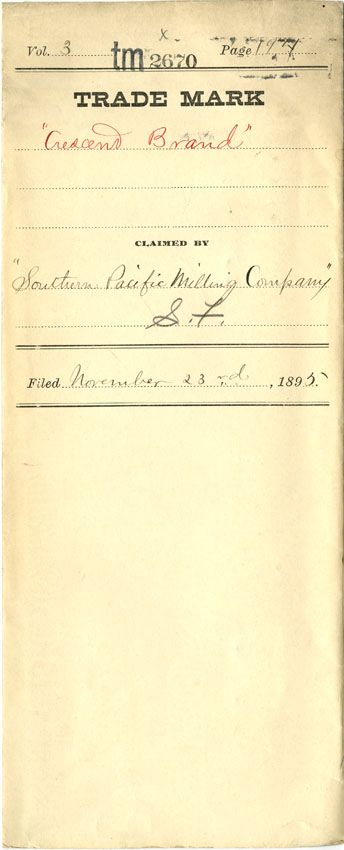 x
Vol. 3 tm 2670 Page
TRADE MARK
"Crescend Brand"
CLAIMED BY
"Southern Pacific Milling Company"
S.F.
Filed November 23rd, 1895.